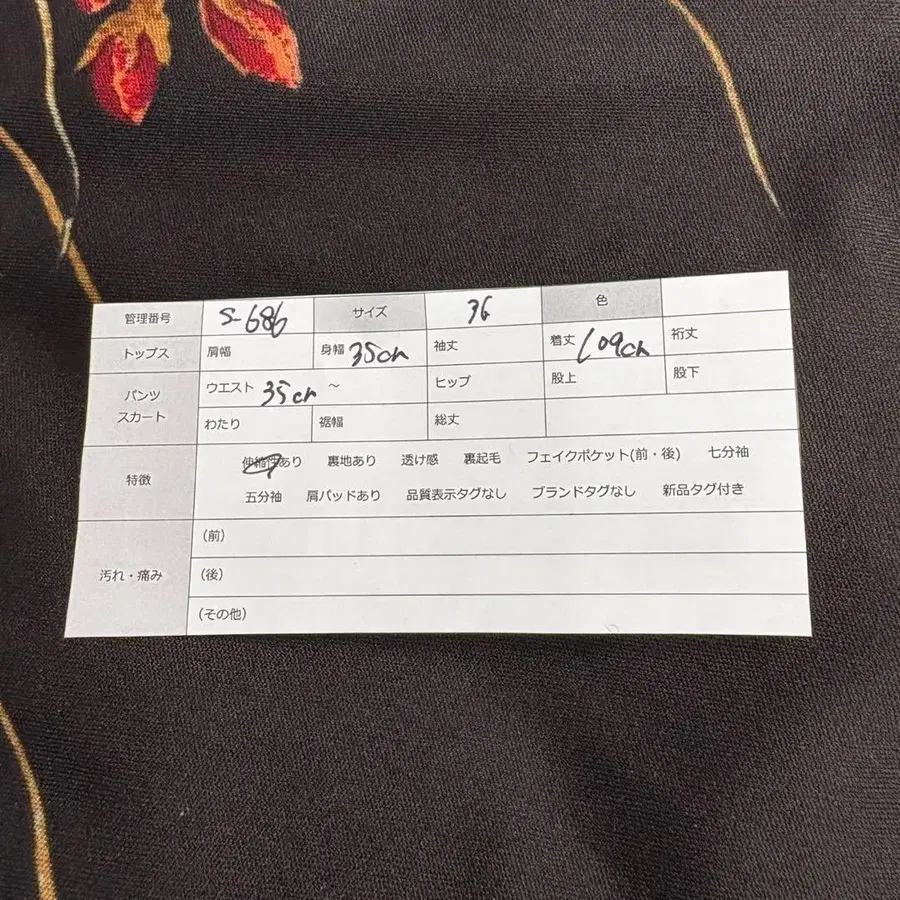 管理番号 S-686 サイズ 36 色
トップス 肩幅 身幅 35cm 袖丈 着丈 109cm 裄丈
パンツ スカート ウエスト 35cm ～ ヒップ 股上 股下
わたり 裾幅 総丈
特徴 伸縮性あり 裏地あり 透け感 裏起毛 フェイクポケット(前・後) 七分袖
五分袖 肩パッドあり 品質表示タグなし ブランドタグなし 新品タグ付き
汚れ・痛み (前)
(後)
(その他)